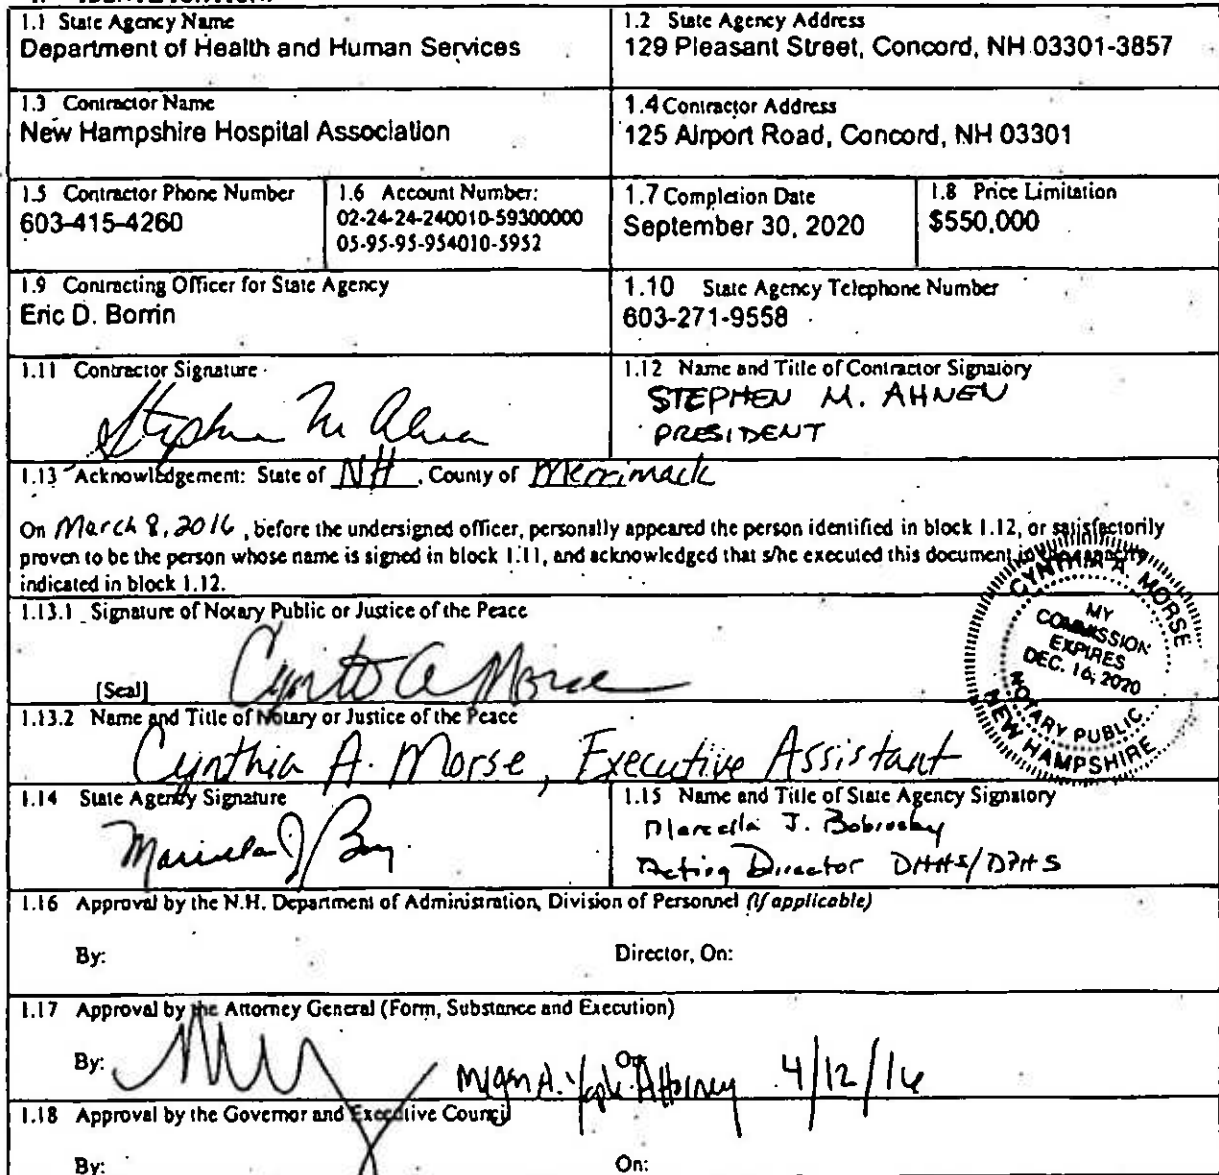 1.1 State Agency Name
Department of Health and Human Services
1.2 State Agency Address
129 Pleasant Street, Concord, NH 03301-3857
1.3 Contractor Name
New Hampshire Hospital Association
1.4 Contractor Address
125 Airport Road, Concord, NH 03301
1.5 Contractor Phone Number
603-415-4260
1.6 Account Number:
02-24-24-240010-59300000
05-95-95-954010-5952
1.7 Completion Date
September 30, 2020
1.8 Price Limitation
$550,000
1.9 Contracting Officer for State Agency
Eric D. Borrin
1.10 State Agency Telephone Number
603-271-9558
1.11 Contractor Signature
Stephen M Ahnen
1.12 Name and Title of Contractor Signatory
STEPHEN M. AHNEN
PRESIDENT
1.13 Acknowledgement: State of NH, County of Merrimack
On March 8, 2016, before the undersigned officer, personally appeared the person identified in block 1.12, or satisfactorily
proven to be the person whose name is signed in block 1.11, and acknowledged that s/he executed this document in the capacity
indicated in block 1.12.
1.13.1 Signature of Notary Public or Justice of the Peace
[Seal]
Cynthia A Morse
CYNTHIA A. MORSE
MY
COMMISSION
EXPIRES
DEC. 16, 2020
NOTARY PUBLIC
NEW HAMPSHIRE
1.13.2 Name and Title of Notary or Justice of the Peace
Cynthia A. Morse, Executive Assistant
1.14 State Agency Signature
1.15 Name and Title of State Agency Signatory
Marcella J. Bobinsky
Acting Director DHHS/DPHS
1.16 Approval by the N.H. Department of Administration, Division of Personnel (if applicable)
By:
Director, On:
1.17 Approval by the Attorney General (Form, Substance and Execution)
By:
On:
Attorney 4/12/16
1.18 Approval by the Governor and Executive Council
By:
On: